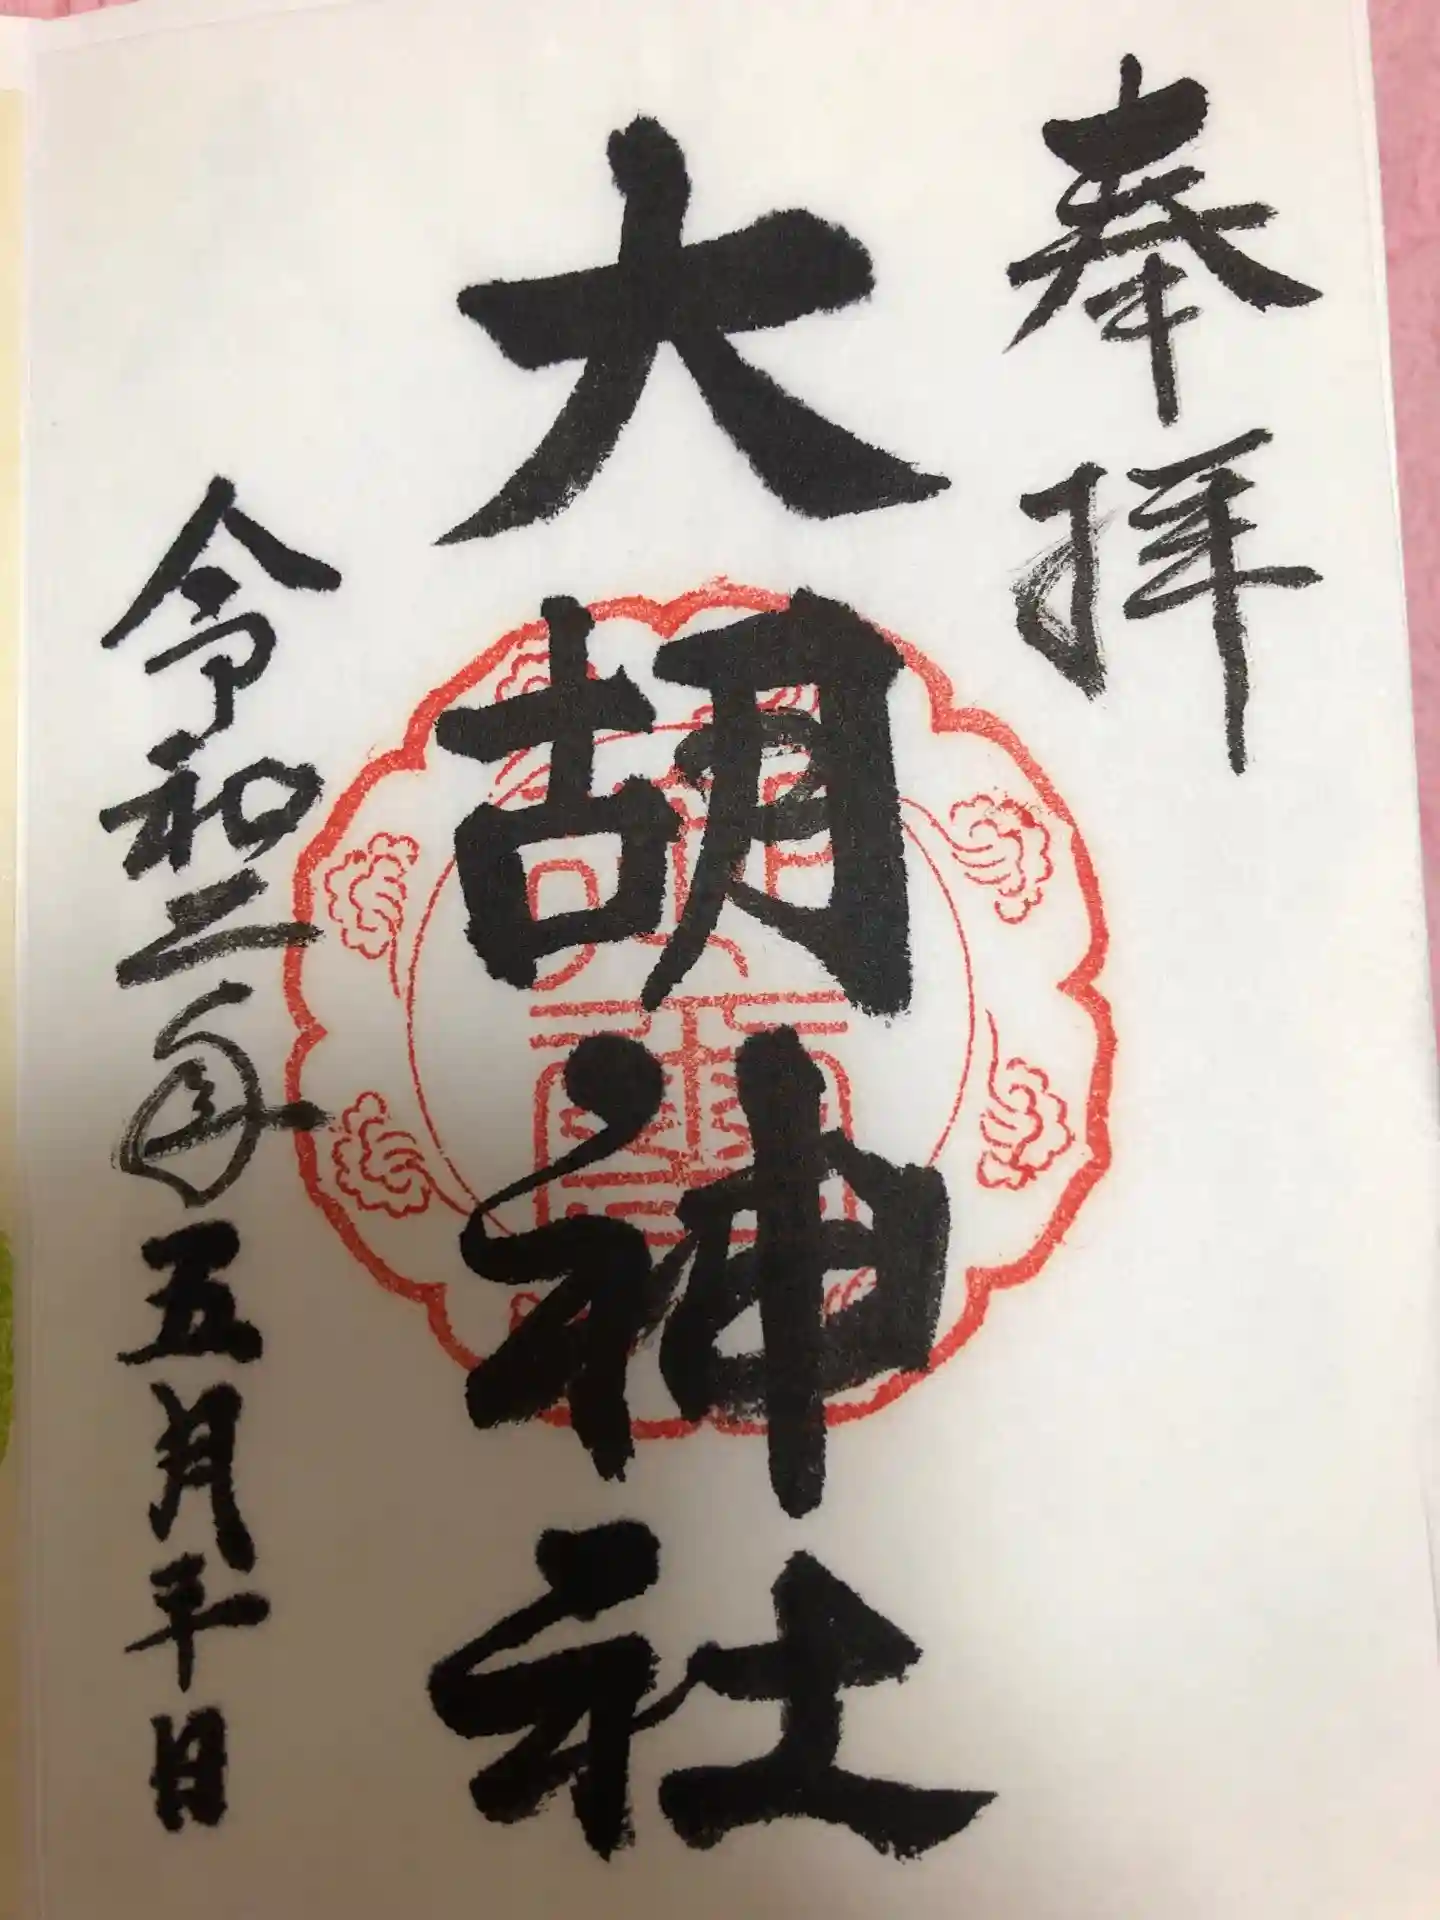 奉拝
大胡神社
令和二年五月二十日